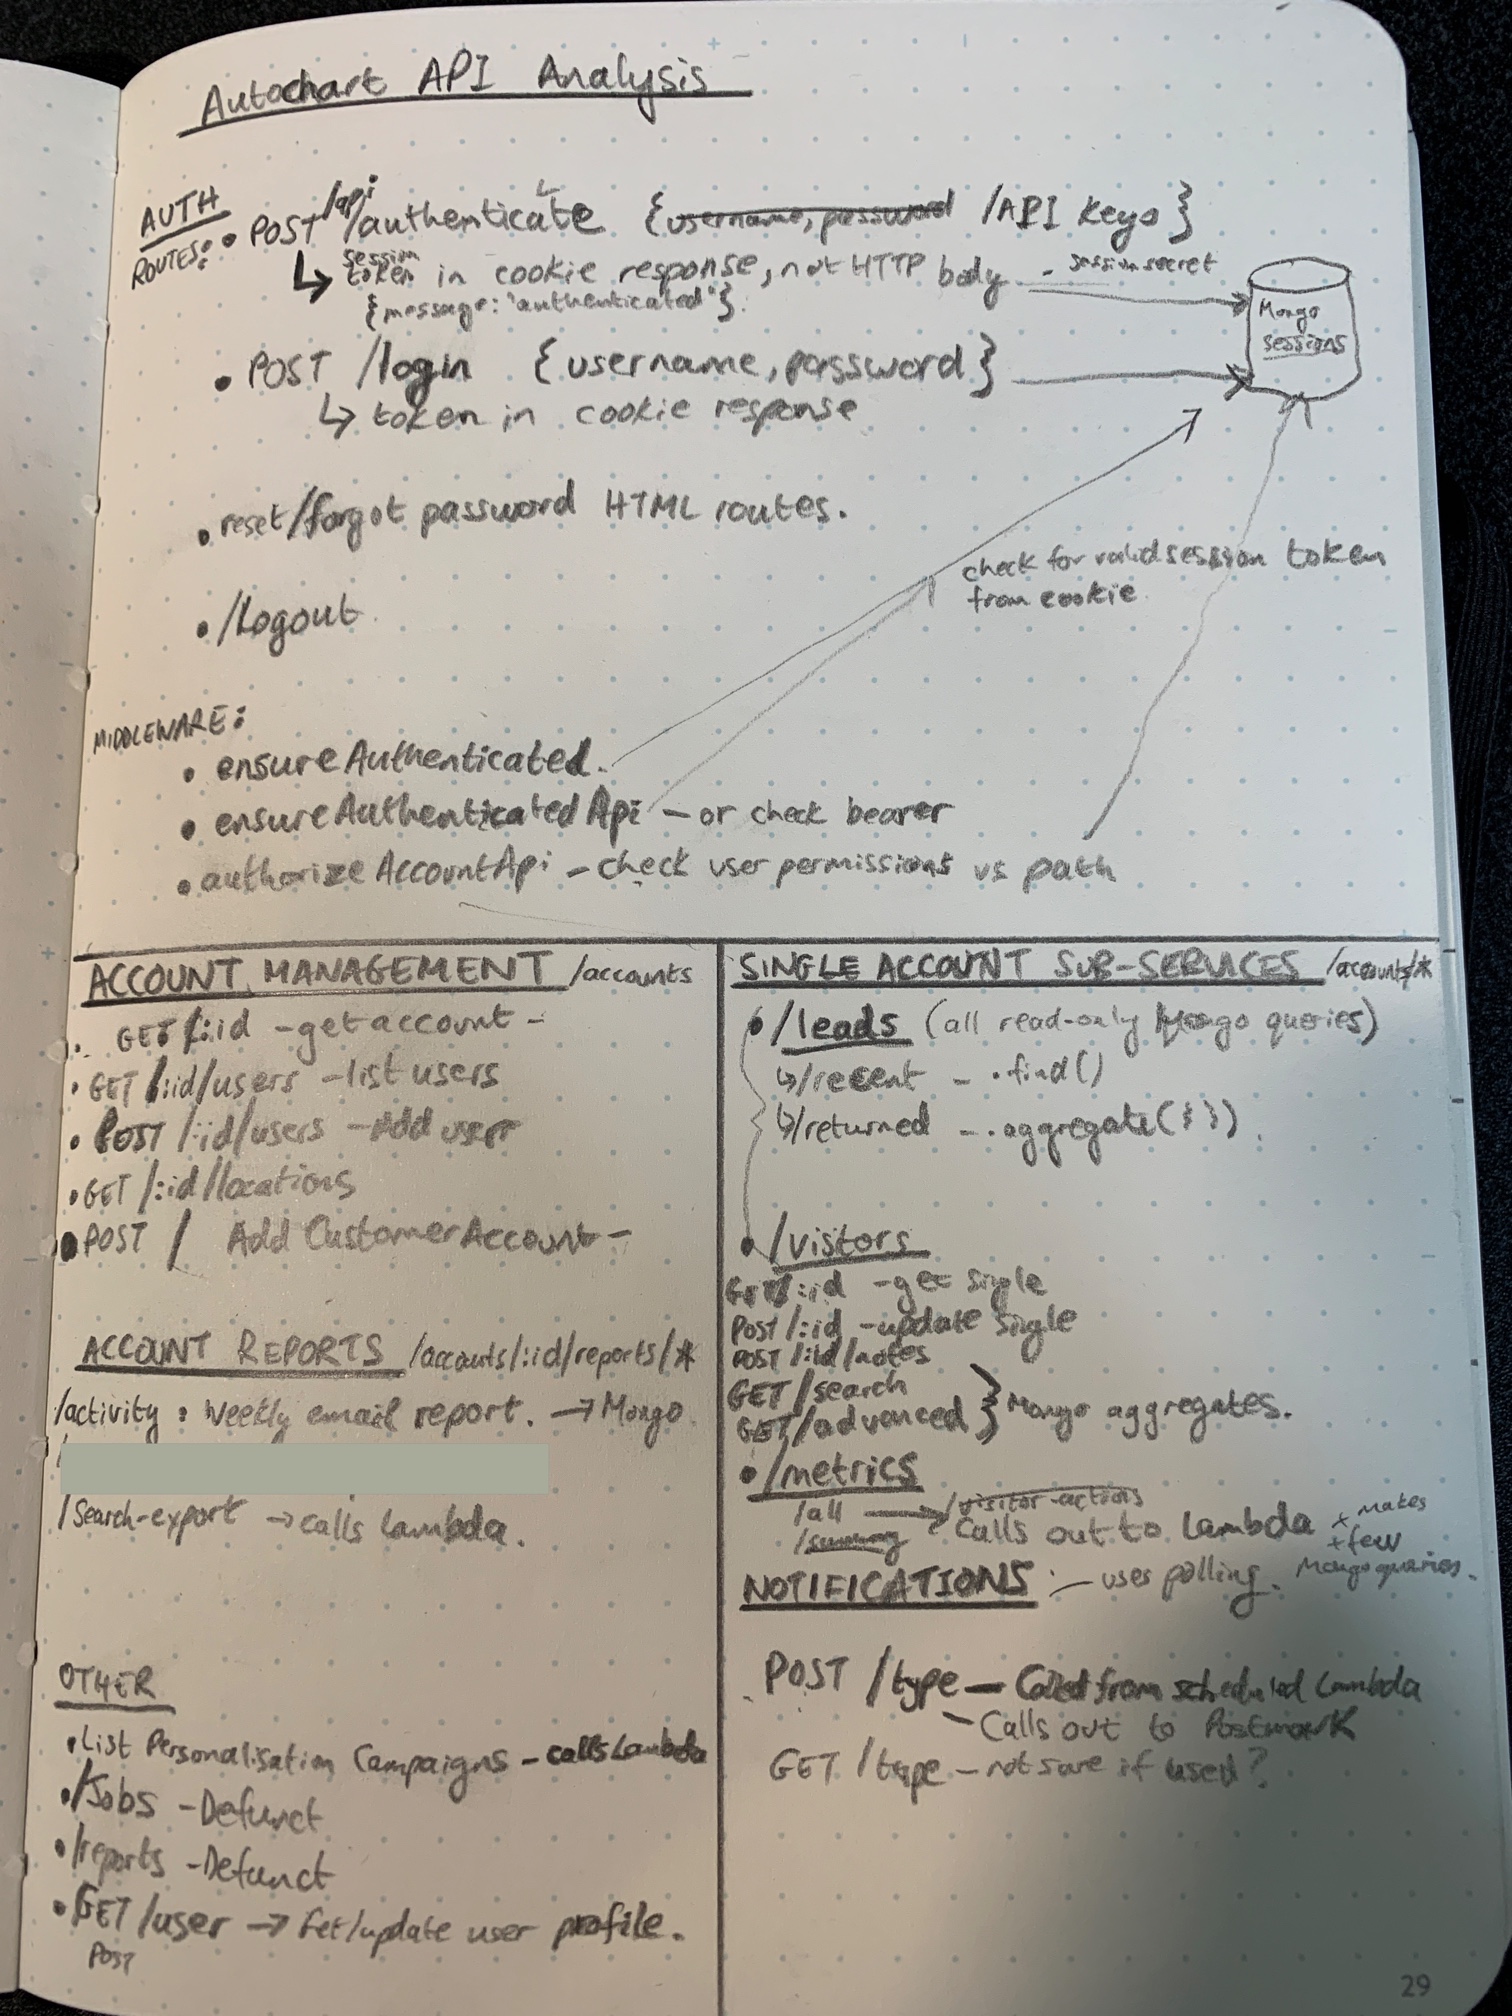 Autochart API Analysis
AUTH
ROUTES:
• POST /api/authenticate {username, password /API Keys}
↳ session token in cookie response, not HTTP body - session secret
{message: "authenticated"}
Mongo
sessions
• POST /login {username, password}
↳ token in cookie response
• reset/forgot password HTML routes.
check for valid session token
from cookie
• /Logout
MIDDLEWARE:
• ensureAuthenticated.
• ensureAuthenticatedApi - or check bearer
• authorizeAccountApi - check user permissions vs path
ACCOUNT MANAGEMENT /accounts
• GET /:id - get account -
• GET /:id/users - list users
• POST /:id/users - Add user
• GET /:id/locations
• POST / Add Customer Account -
ACCOUNT REPORTS /accounts/:id/reports/*
/activity : Weekly email report. → Mongo
/search-export → calls Lambda.
OTHER
• List Personalisation Campaigns - calls Lambda
• /Jobs - Defunct
• /reports - Defunct
• GET /user → Get/update user profile.
POST
SINGLE ACCOUNT SUB-SERVICES /accounts/*
• /leads (all read-only Mongo queries)
↳ /recent - .find()
↳ /returned - .aggregate({})
• /visitors
GET /:id - get single
POST /:id - update single
POST /:id/notes
GET /search
GET /advanced } Mongo aggregates.
• /metrics
/all → /visitor-actions
/summary Calls out to Lambda + makes
+ few
Mongo queries.
NOTIFICATIONS - uses polling.
POST /type - Called from scheduled Lambda
- Calls out to Postmark
GET /type - not sure if used?
29